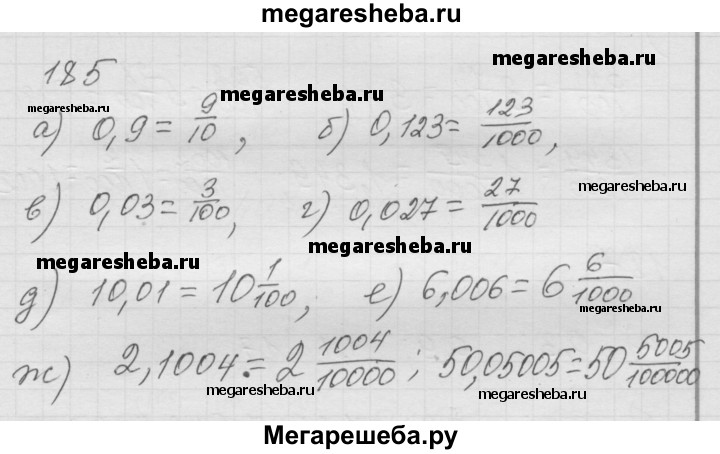 megaresheba.ru
185
megaresheba.ru
megaresheba.ru megaresheba.ru
а) 0,9 = 9/10, б) 0,123 = 123/1000,
в) 0,03 = 3/100, г) 0,027 = 27/1000
megaresheba.ru
megaresheba.ru
megaresheba.ru
д) 10,01 = 10 1/100, е) 6,006 = 6 6/1000
megaresheba.ru
megaresheba.ru
ж) 2,1004 = 2 1004/10000; 50,05005 = 50 5005/100000
megaresheba.ru
megaresheba.ru
Мегарешеба.ру